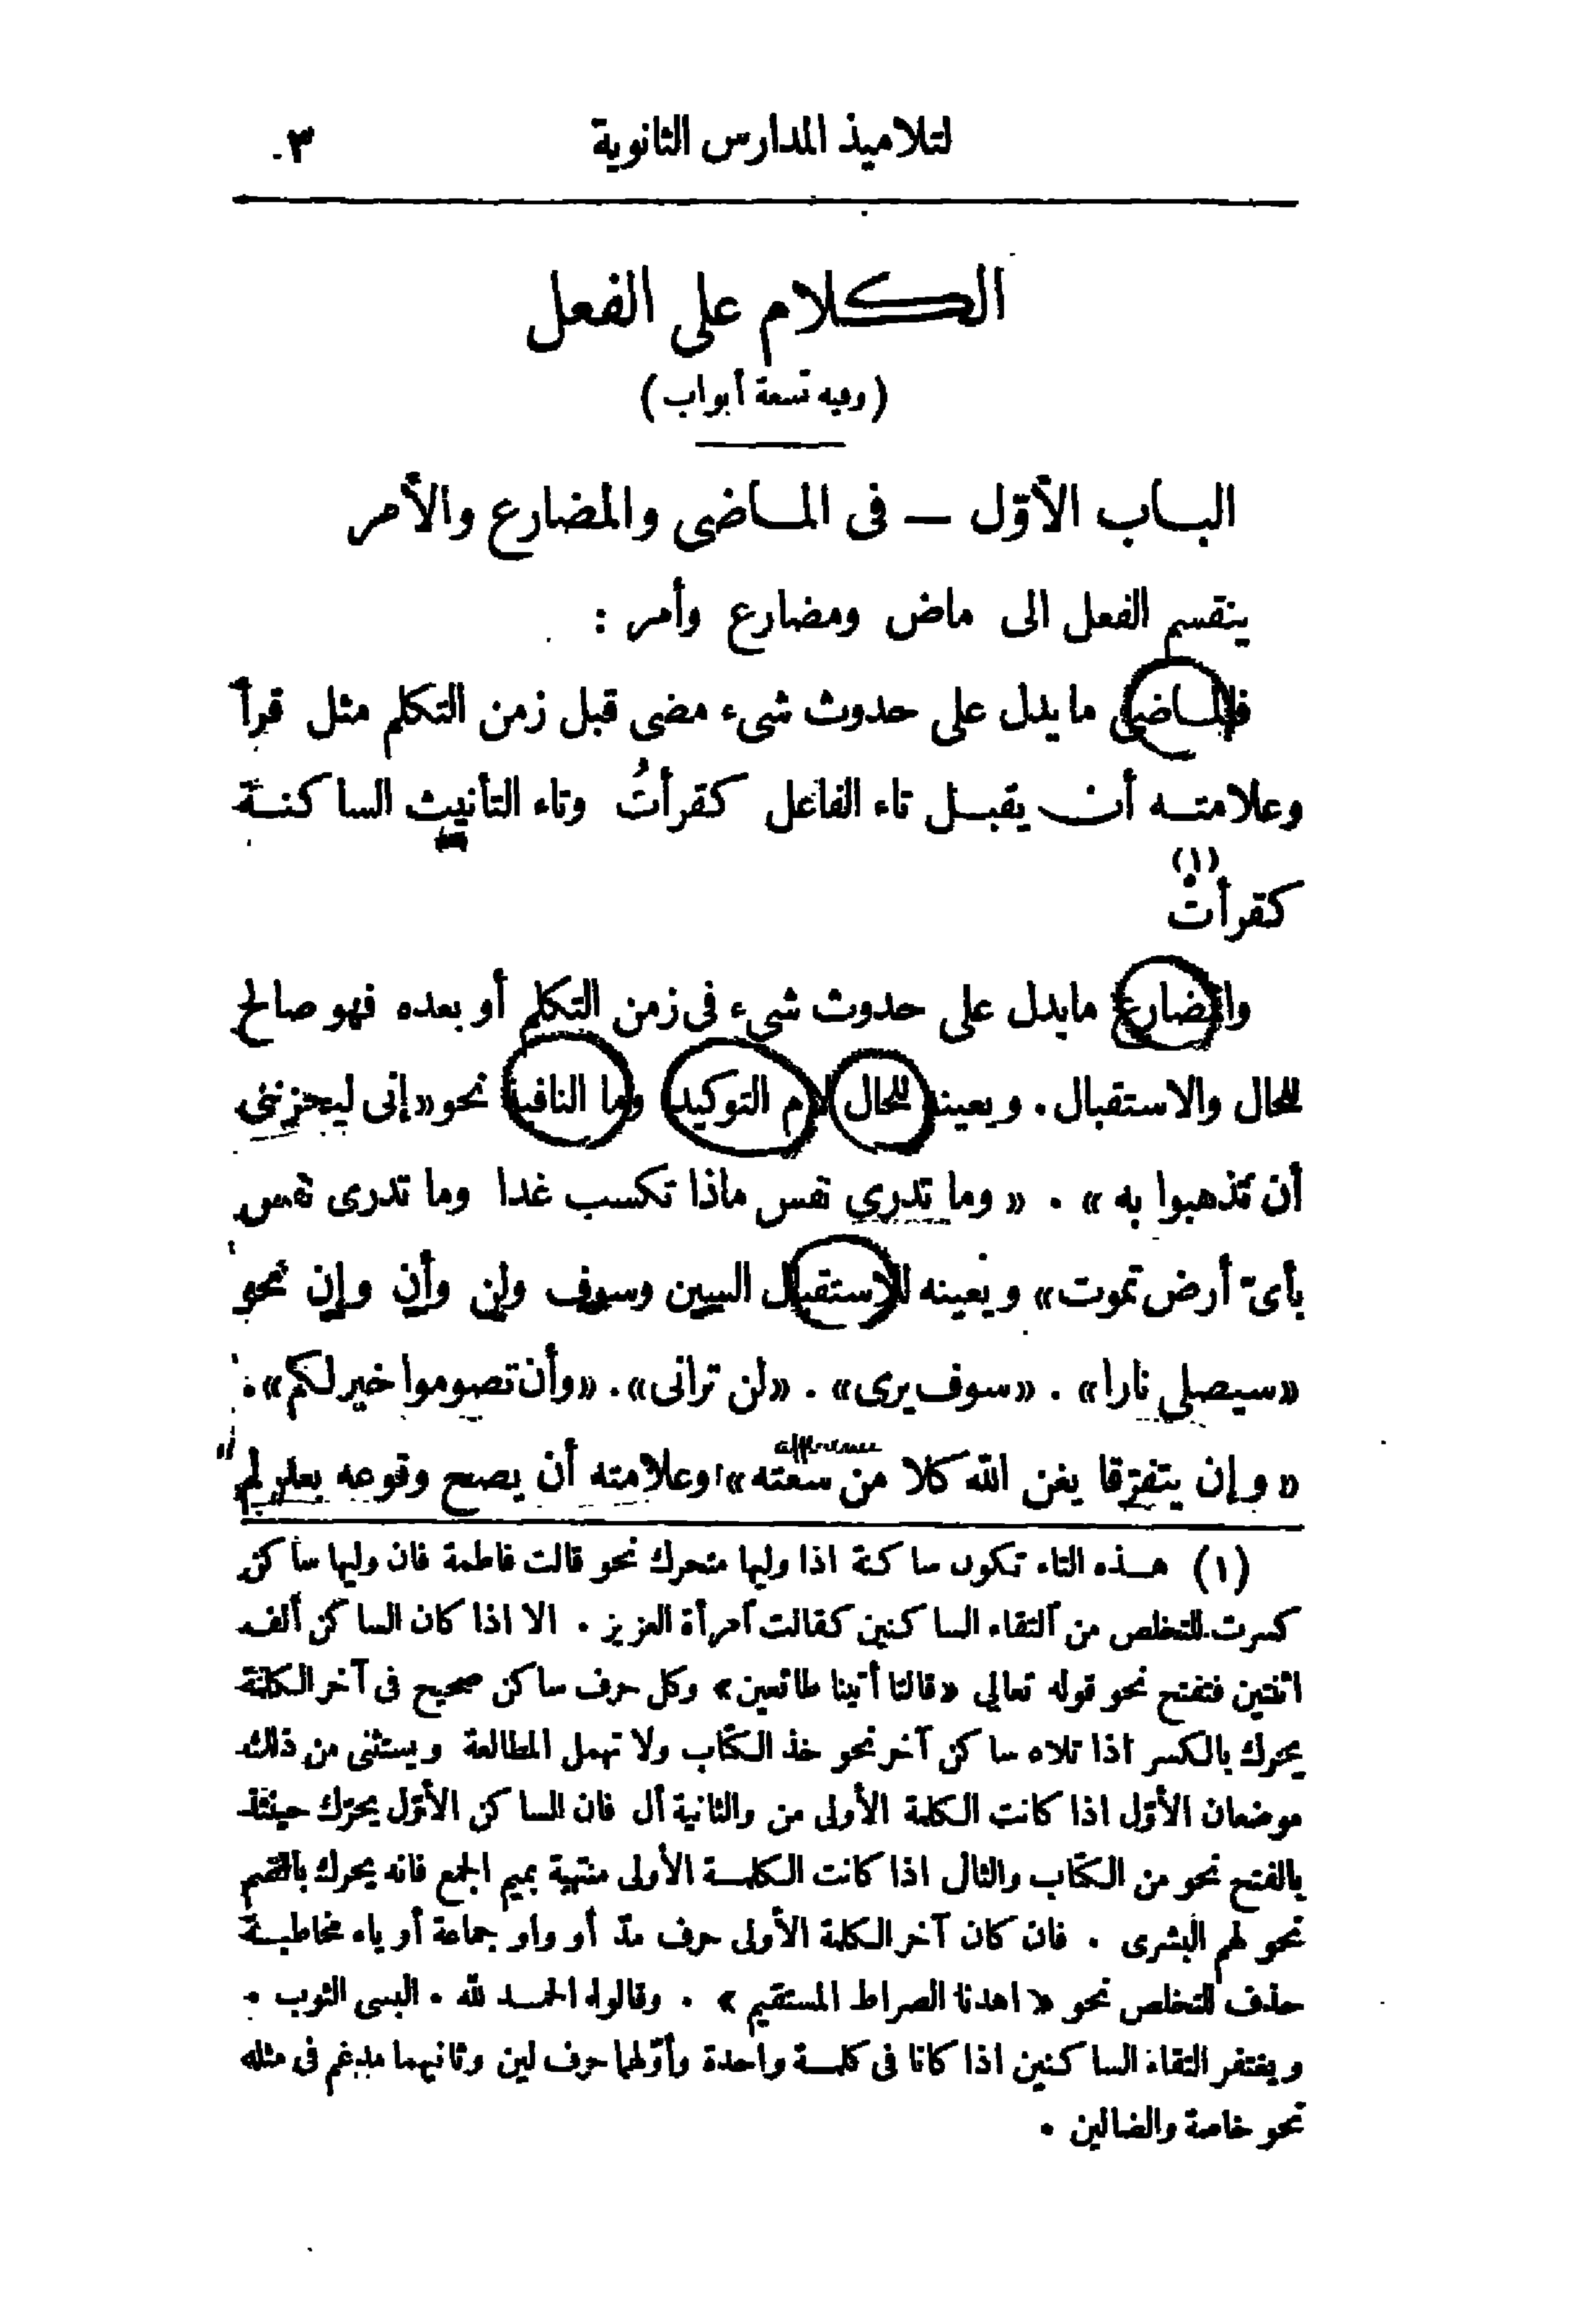 لتلاميذ المدارس الثانوية ٣
الكلام على الفعل
(وفيه تسعة أبواب)
الباب الأوّل — فى الماضى والمضارع والأمر
ينقسم الفعل الى ماض ومضارع وأمر :
فالماضى ما يدل على حدوث شىء مضى قبل زمن التكلم مثل قرأ
وعلامته أن يقبل تاء الفاعل كقرأتُ وتاء التأنيث الساكنة
كقرأتْ (١)
والمضارع ما يدل على حدوث شىء فى زمن التكلم أو بعده فهو صالح
للحال والاستقبال . ويعينه للحال لام التوكيد وما النافية نحو «إنى ليحزننى
أن تذهبوا به» . «وما تدرى نفس ماذا تكسب غدا وما تدرى نفس
بأىّ أرض تموت» ويعينه للاستقبال السين وسوف ولن وأن وإن نحو
«سيصلى نارا» . «سوف يرى» . «لن ترانى» . «وأن تصوموا خير لكم» .
«وإن يتفرّقا يغن الله كلا من سعته» وعلامته أن يصح وقوعه بعد لم
(١) هذه التاء تكون ساكنة اذا وليها متحرك نحو قالت فاطمة فان وليها ساكن
كسرت للتخلص من التقاء الساكنين كقالت آمرأة العزيز . الا اذا كان الساكن ألف
اثنتين فتفتح نحو قوله تعالى «قالتا أتينا طائعين» وكل حرف ساكن صحيح فى آخر الكلمة
يحرك بالكسر اذا تلاه ساكن آخر نحو خذ الكتاب ولا تهمل المطالعة ويستثنى من ذلك
موضعان الأوّل اذا كانت الكلمة الأولى من والثانية أل فان الساكن الأوّل يحرّك حينئذ
بالفتح نحو من الكتاب والثانى اذا كانت الكلمة الأولى منتهية بميم الجمع فانه يحرك بالضم
نحو لهم البشرى . فان كان آخر الكلمة الأولى حرف مدّ أو واو جماعة أو ياء مخاطبة
حذف للتخلص نحو «اهدنا الصراط المستقيم» . وقالوا الحمد لله . البسى الثوب .
ويغتفر التقاء الساكنين اذا كانا فى كلمة واحدة وأوّلهما حرف لين وثانيهما مدغم فى مثله
نحو خاصة والضالين .